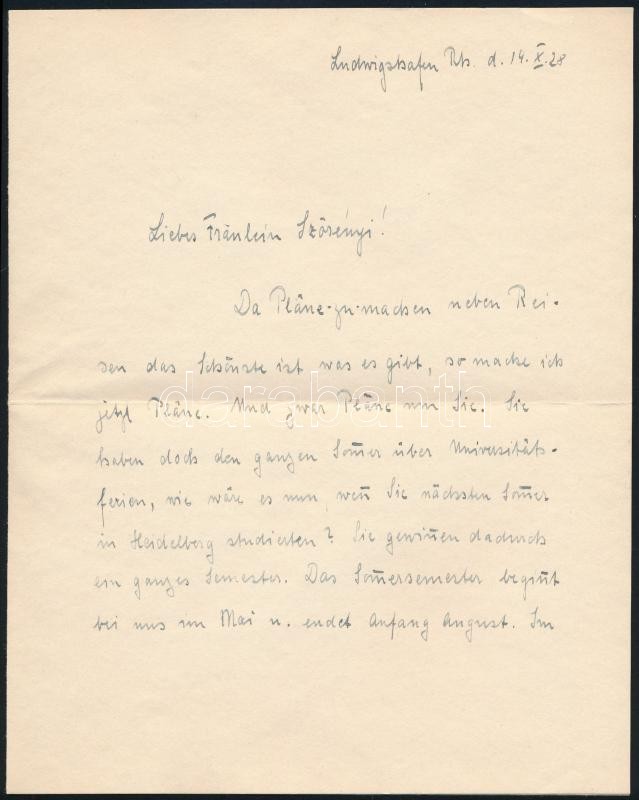 Ludwigshafen Rh. d. 14. X. 28
Liebes Fräulein Szörényi!
Da Pläne-zu-machen neben Rei-
sen das Schönste ist was es gibt, so mache ich
jetzt Pläne. Und zwar Pläne um Sie. Sie
haben doch den ganzen Som̄er über Universitäts-
ferien, wie wäre es nun, wen̄ Sie nächsten Som̄er
in Heidelberg studierten? Sie gewin̄en dadurch
ein ganzes Semester. Das Som̄ersemester begin̄t
bei uns im Mai u. endet Anfang August. Im
darabanth